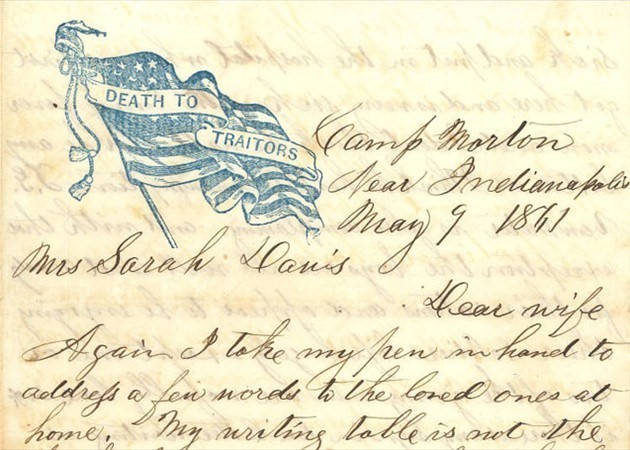 DEATH TO
TRAITORS
Camp Morton
Near Indianapolis
May 9 1861
Mrs Sarah Davis
Dear wife
Again I take my pen in hand to
address a few words to the loved ones at
home. My writing table is not the